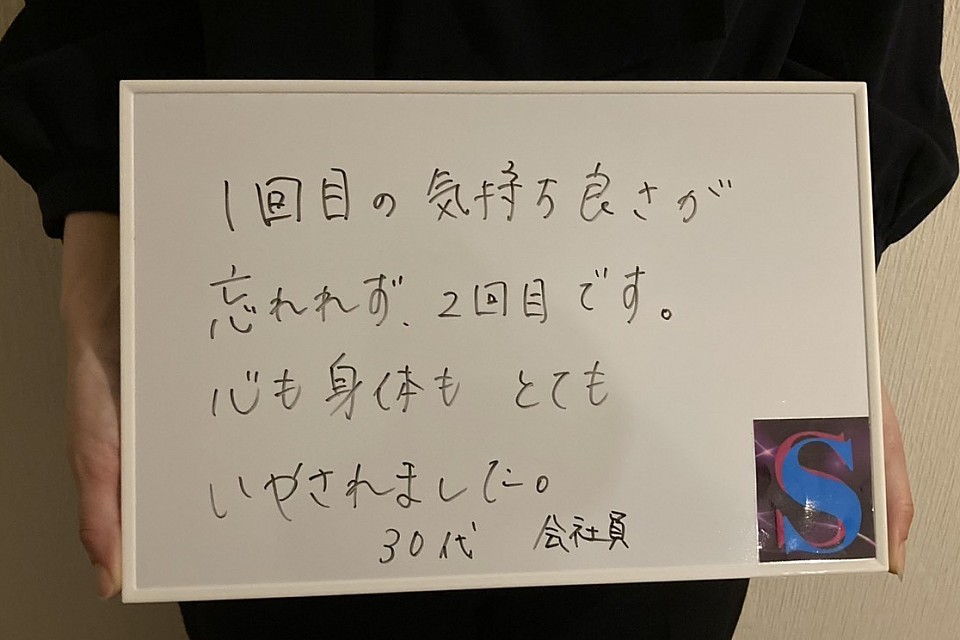 1回目の気持ち良さが
忘れれず、2回目です。
心も身体も とても
いやされました。
30代 会社員
S